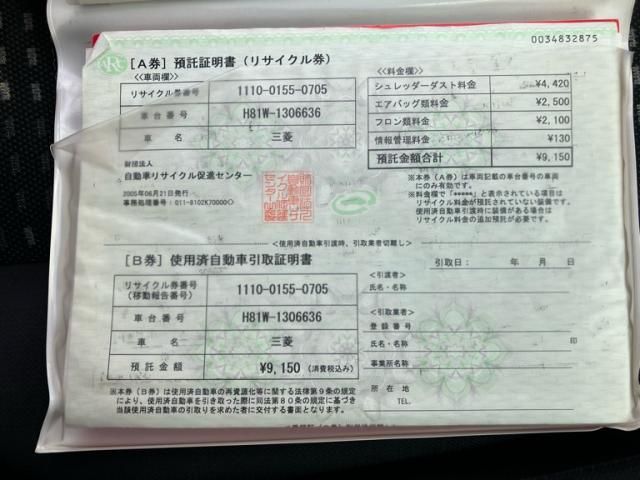 0034832875
[A券] 預託証明書 (リサイクル券)
<車両欄>
リサイクル券番号 1110-0155-0705
車台番号 H81W-1306636
車名 三菱
<料金欄>
シュレッダーダスト料金 ¥4,420
エアバッグ類料金 ¥2,500
フロン類料金 ¥2,100
情報管理料金 ¥130
預託金額合計 ¥9,150
財団法人
自動車リサイクル促進センター
2005年06月21日発行
事務処理番号:011-8102K70000◇
※本券(A券)は車両記載の車台番号の車両
にのみ有効です。
※料金欄で「*****」と表示されている項目は
リサイクル料金が預託されていない装備です。
使用済自動車引渡時に装備がある場合は
リサイクル料金の追加預託が必要です。
<使用済自動車引渡時、引取業者切離し>
[B券] 使用済自動車引取証明書
引取日: 年 月 日
リサイクル券番号
(移動報告番号) 1110-0155-0705
車台番号 H81W-1306636
車名 三菱
預託金額 ¥9,150 (消費税込み)
<引渡者>
氏名・名称
<引取業者>
登録番号
氏名・名称 印
事業所名称
所在地
TEL.
※本券(B券)は使用済自動車の再資源化等に関する法律第9条の規定
により、使用済自動車を引き取った際に同法第80条の規定に基づき
当該使用済自動車の引取りを求めた者に交付する書面となります。